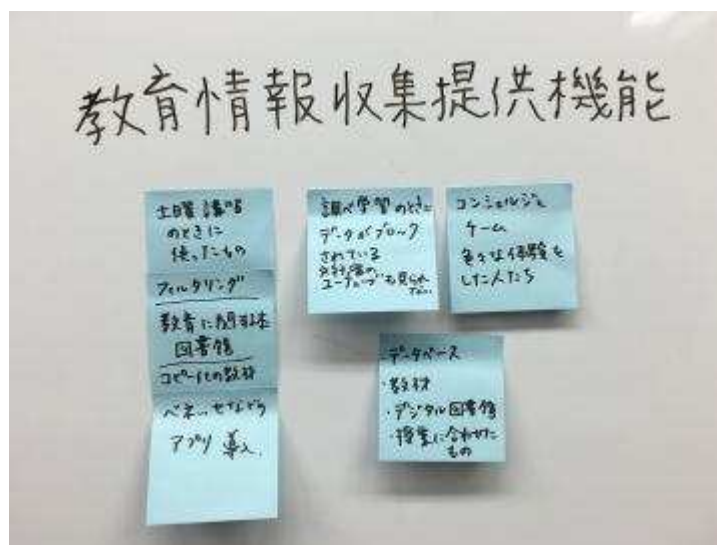 教育情報収集提供機能
土曜講習
のときに
使ったもの
フィルタリング
教育に関する本
図書館
コピー代の教材
ベネッセなどの
アプリ導入
調べ学習のときに
データがブロック
されている
ユーチューブも見られ
ない
コンシェルジュ
チーム
色々な体験を
した人たち
・データベース
・教材
・デジタル図書館
・授業に合わせた
もの